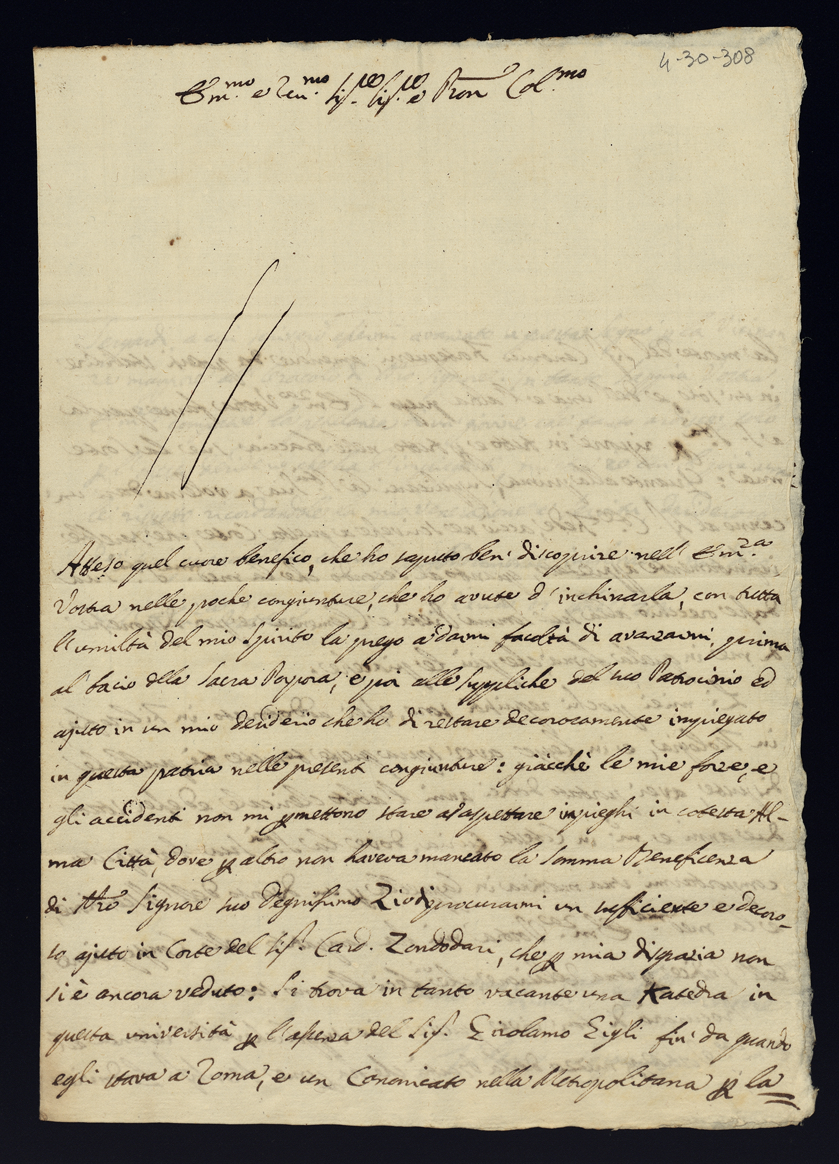 4-30-308
Em.mo e Rev.mo Sig.re Sig.re e Pron Col.mo
Atteso quel cuore benefico, che ho saputo ben' discoprire nell' Em.za
Vostra nelle poche congiunture, che ho avute d' inchinarla, con tutta
l'umiltà del mio spirito la prego a darmi facoltà di avanzarmi, prima
al bacio della Sacra Porpora, e poi alle suppliche del suo Patrocinio ed
ajuto in un mio desiderio che ho di restare decorosamente impiegato
in questa patria nelle presenti congiunture: giacchè le mie forze, e
gli accidenti non mi permettono stare ad aspettare impieghi in cotesta Al-
ma Città, dove per altro non haveva mancato la somma Beneficenza
di Nro Signore suo degnissimo Zio di procurarmi un sufficiente e decoro-
so ajuto in Corte del Sig. Card. Zondodari, che per mia disgrazia non
si è ancora veduto: Si trova in tanto vacante una Katedra in
questa università per l'assenza del Sig. Girolamo Gigli fin' da quando
egli stava a Roma, e un Canonicato nella Metropolitana per la